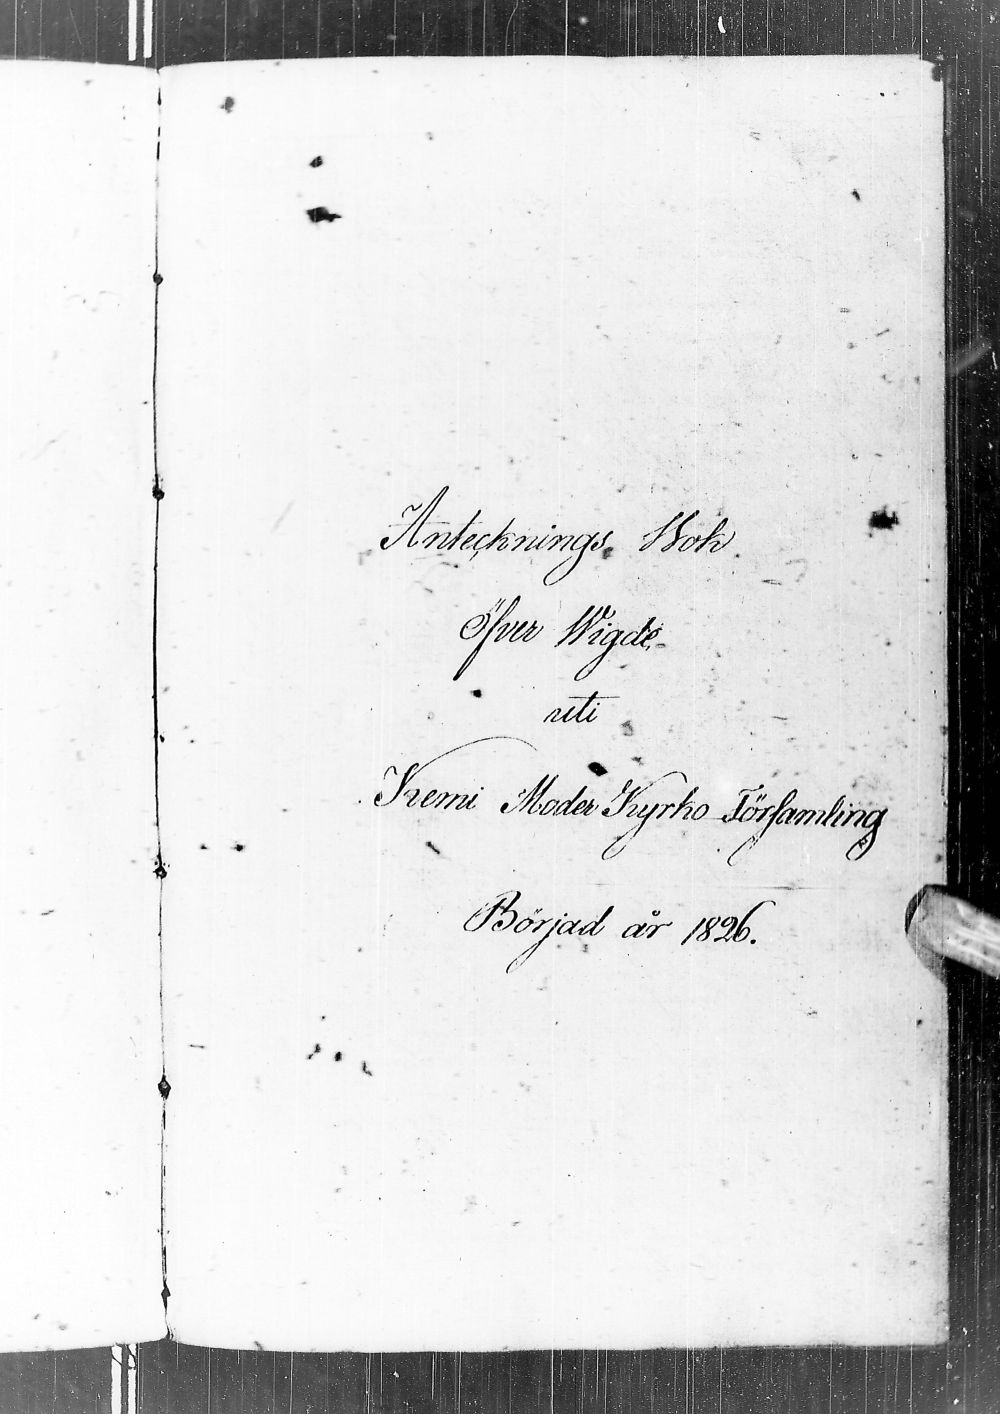 Antecknings Bok
Öfver Wigde
uti
Kemi Moder Kyrko Församling
Börjad år 1826.